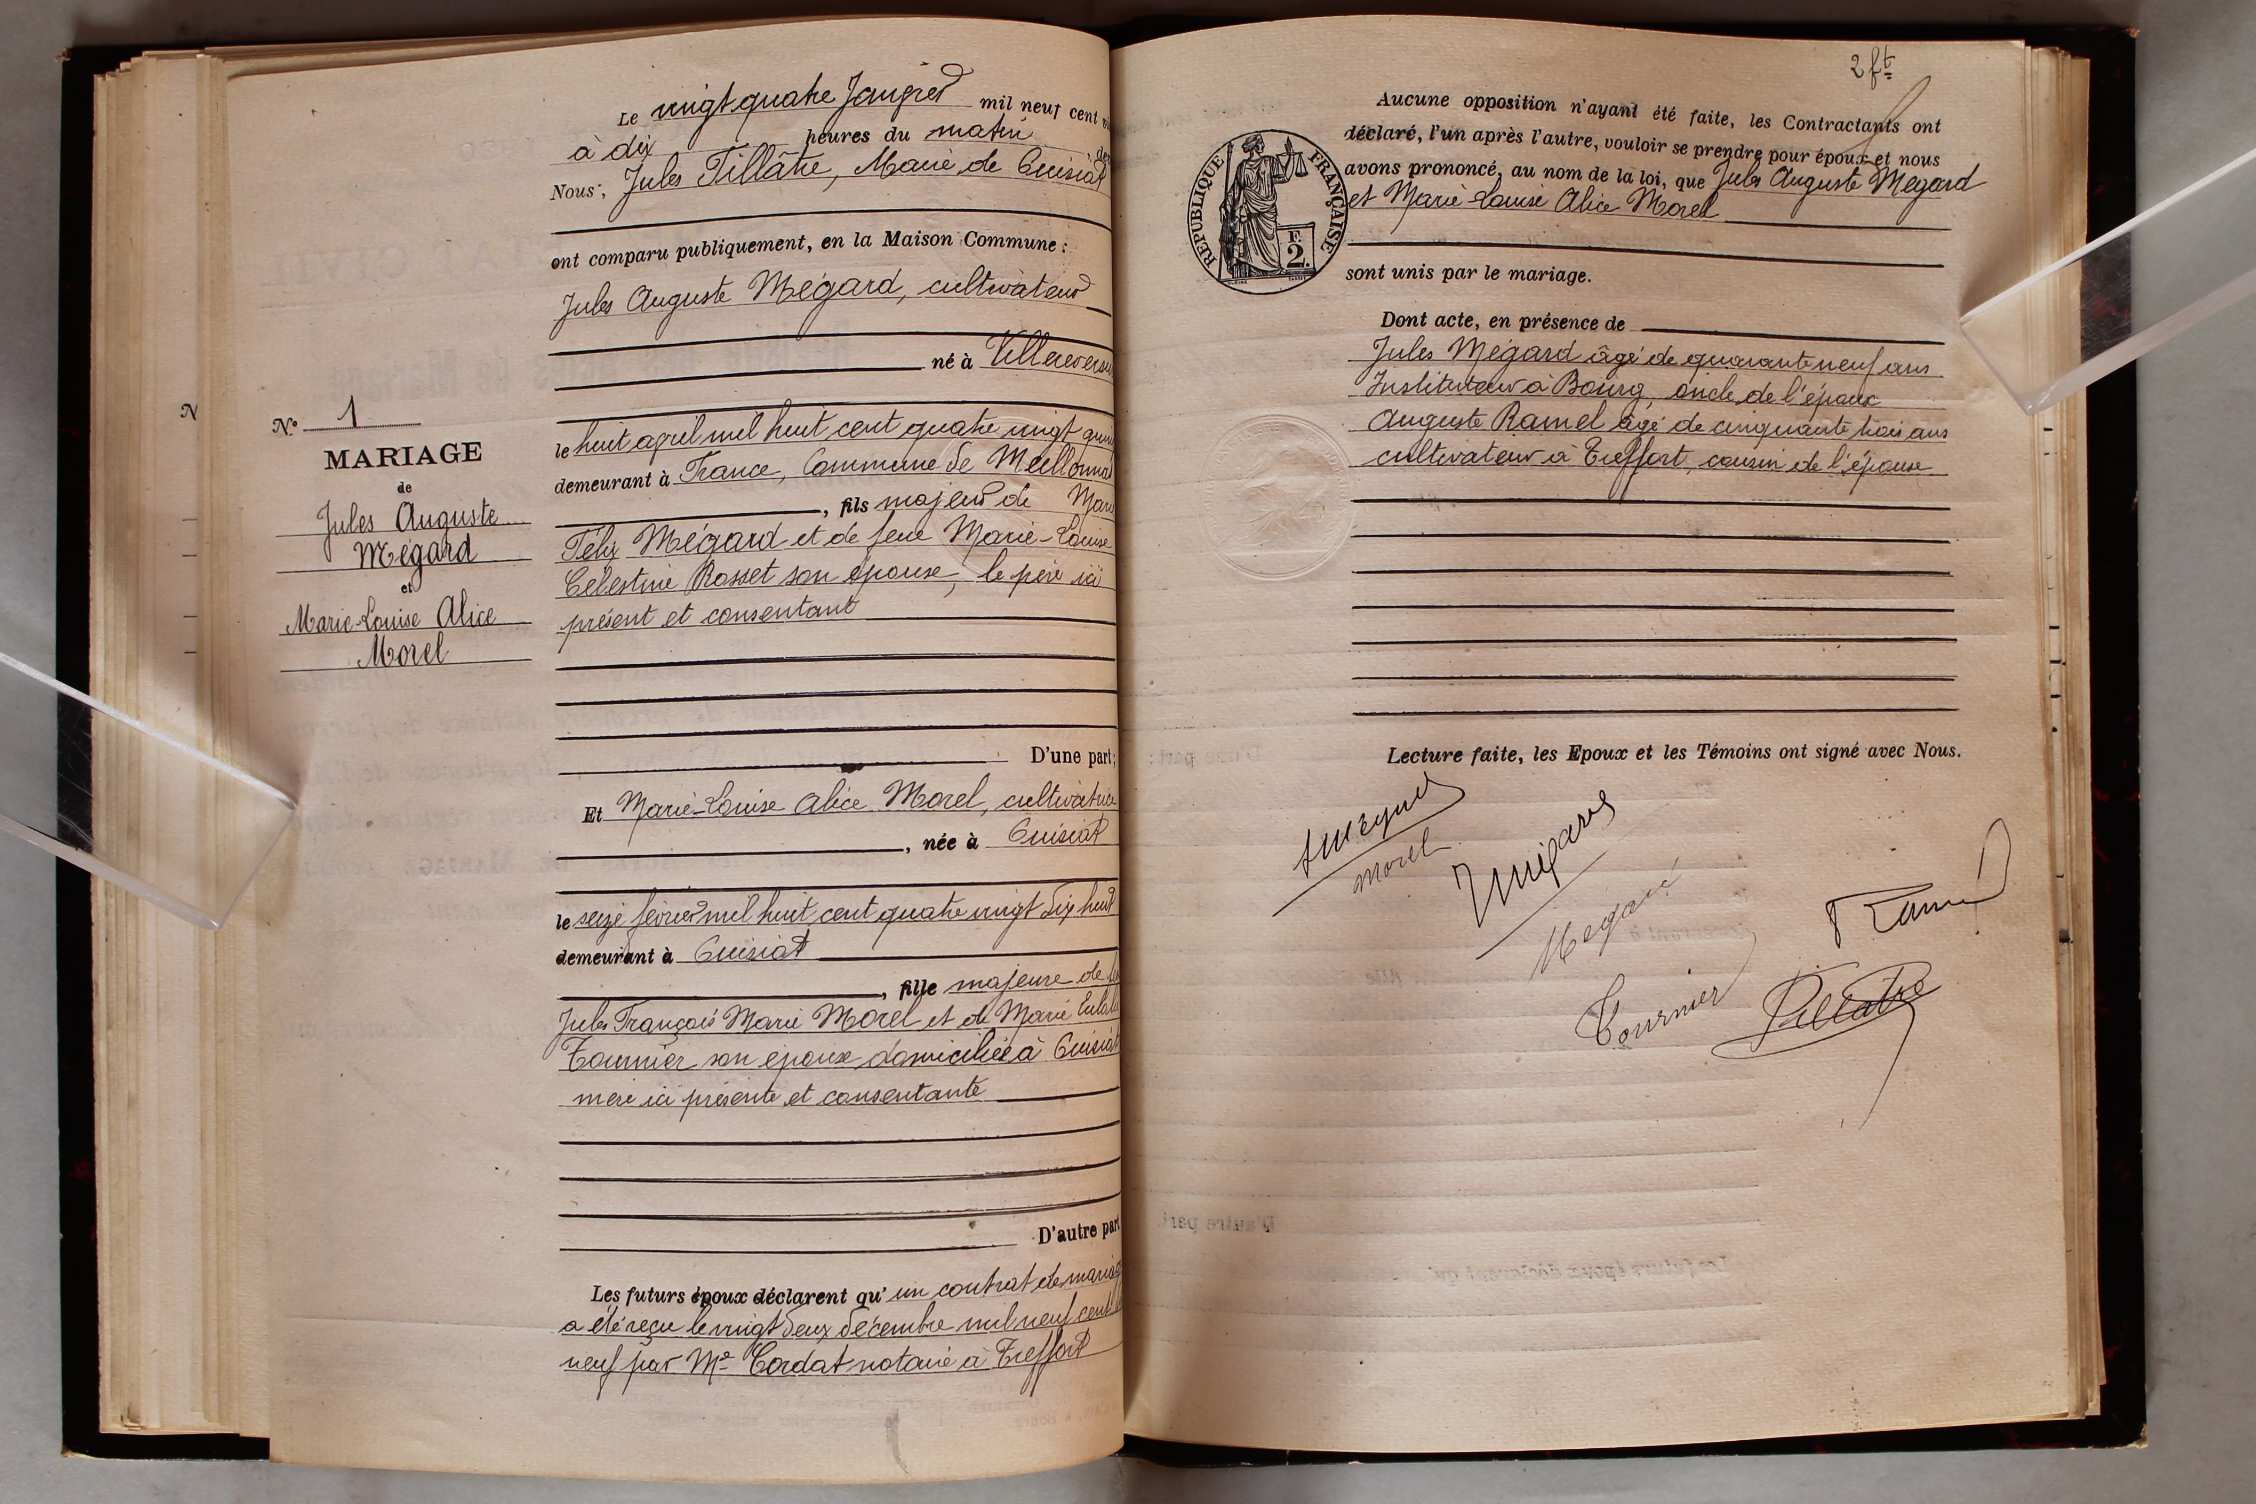 Le vingt quatre Janvier mil neuf cent
à dix heures du matin
Nous, Jules Pillâtre, Maire de Cuisiat
ont comparu publiquement, en la Maison Commune :
Jules Auguste Mégard, cultivateur
né à Villereversure
le huit avril mil huit cent quatre vingt quinze
demeurant à France, Commune de Meillonnas
, fils majeur de Marie
Félix Mégard et de feue Marie-Louise
Célestine Rosset son épouse, le père ici
présent et consentant
D'une part ;
N° 1
MARIAGE
de
Jules Auguste
Mégard
et
Marie-Louise Alice
Morel
Et Marie-Louise Alice Morel, cultivatrice
, née à Cuisiat
le seize février mil huit cent quatre vingt dix huit
demeurant à Cuisiat
, fille majeure de feu
Jules François Marie Morel et de Marie Eulalie
Tournier son épouse domiciliée à Cuisiat
mère ici présente et consentante
D'autre part
Les futurs époux déclarent qu'un contrat de mariage
a été reçu le vingt deux décembre mil neuf cent
neuf par Me Cordat notaire à Treffort
2 ft
Aucune opposition n'ayant été faite, les Contractants ont
déclaré, l'un après l'autre, vouloir se prendre pour époux et nous
avons prononcé, au nom de la loi, que Jules Auguste Mégard
et Marie-Louise Alice Morel
sont unis par le mariage.
REPUBLIQUE FRANÇAISE
F.
2.
Dont acte, en présence de
Jules Mégard âgé de quarante neuf ans
Instituteur à Bourg, oncle de l'époux
Auguste Ramel âgé de cinquante trois ans
cultivateur à Treffort, cousin de l'épouse
Lecture faite, les Epoux et les Témoins ont signé avec Nous.
Morel
Mégard
Mégard
Ramel
Tournier
Pillatre